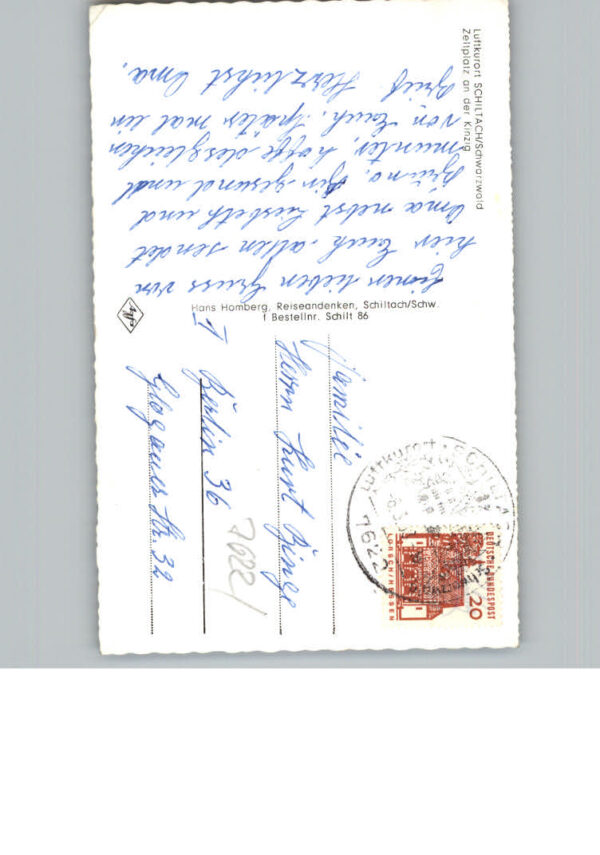 Luftkurort SCHILTACH/Schwarzwald
Zeltplatz an der Kinzig
Einen lieben Gruss von
hier Euch allen sendet
Oma nebst Lisbeth und
Bruno. Bin gesund und
munter, hoffe desgleichen
von Euch. Später mal ein
Brief. Herzlichst Oma.
Hans Homberg, Reiseandenken, Schiltach/Schw.
f Bestellnr. Schilt 86
Familie
Herrn Kurt Binge
Berlin 36
Glogauer Str. 32
7622
7622
Luftkurort
SCHILTACH
DEUTSCHE BUNDESPOST
20
LORSCH/HESSEN